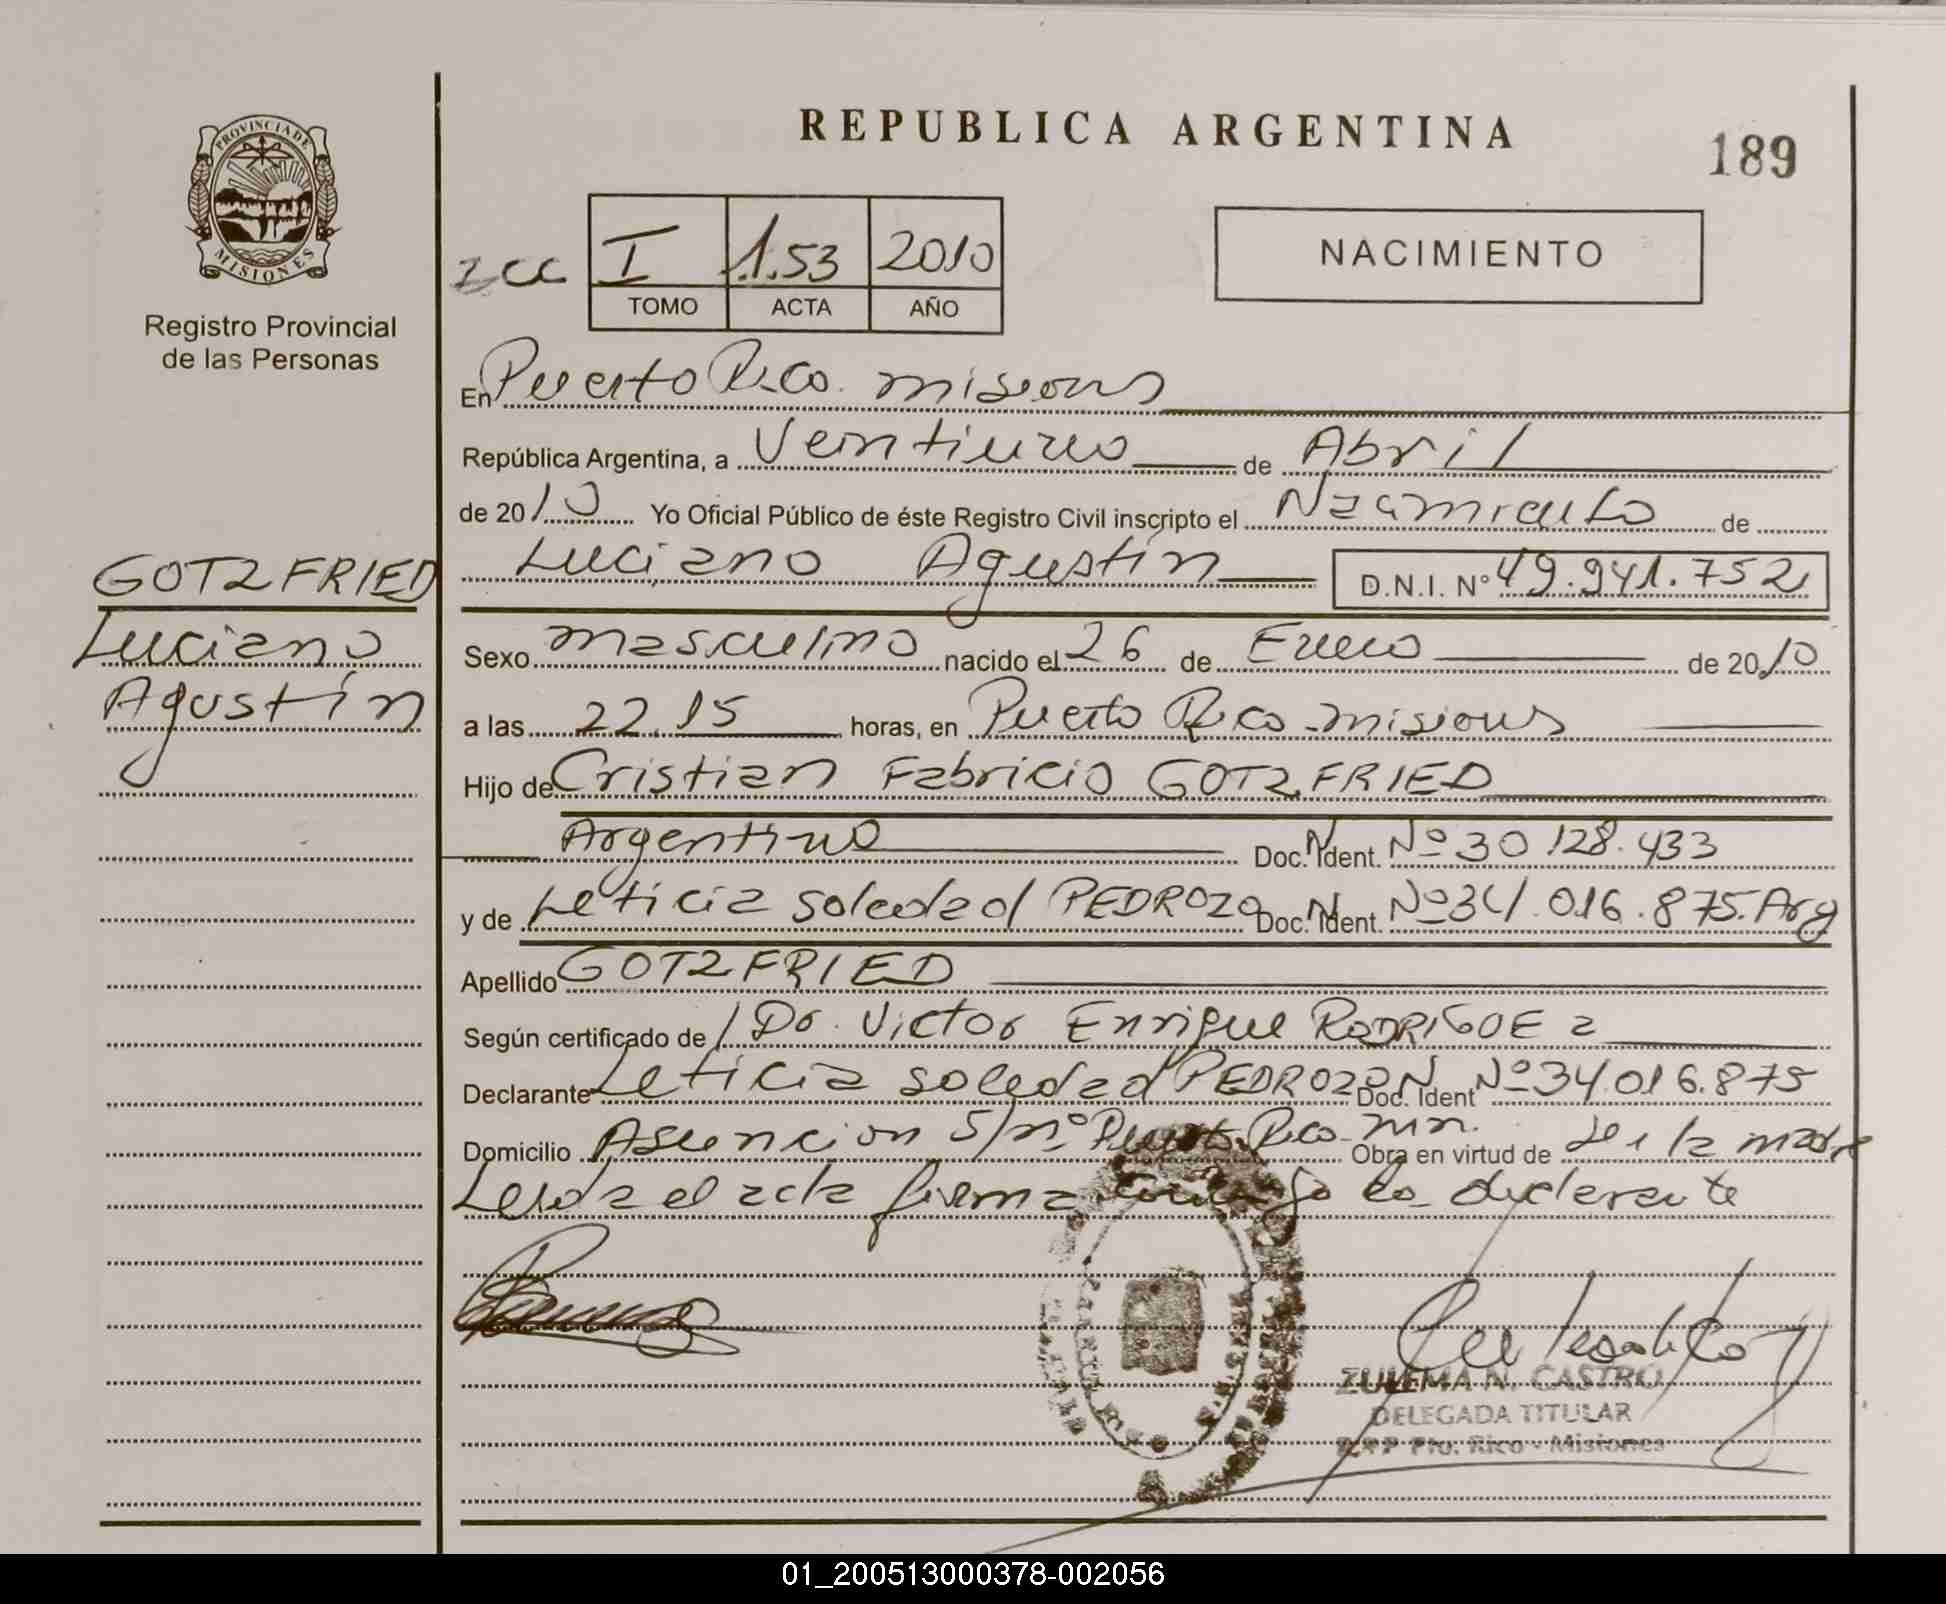 REPUBLICA ARGENTINA
189
PROVINCIA DE MISIONES
Registro Provincial
de las Personas
I 1.53 2010
TOMO ACTA AÑO
NACIMIENTO
En Puerto Rico. misiones
República Argentina, a Veintiuno de Abril
de 2010 Yo Oficial Público de éste Registro Civil inscripto el Nacimiento de
Luciano Agustín D.N.I. Nº 49.941.752
GOTZFRIED
Luciano
Agustín
Sexo masculino nacido el 26 de Enero de 2010
a las 22,15 horas, en Puerto Rico - misiones
Hijo de Cristian Fabricio GOTZFRIED
Argentino Doc. N Ident. Nº 30 128.433
y de Leticia soledad PEDROZO Doc. N Ident. Nº 34.016.875. Arg
Apellido GOTZFRIED
Según certificado de / Dr. Victor Enrique RODRIGUEZ
Declarante Leticia soledad PEDROZO Doc. N Ident Nº 34.016.875
Domicilio Asuncion S/nº Puerto Rico - Mn. Obra en virtud de de la madre
Leida el acta firma conmigo la declarante
ZULEMA N. CASTRO
DELEGADA TITULAR
R.P.P Pto. Rico - Misiones
01_200513000378-002056